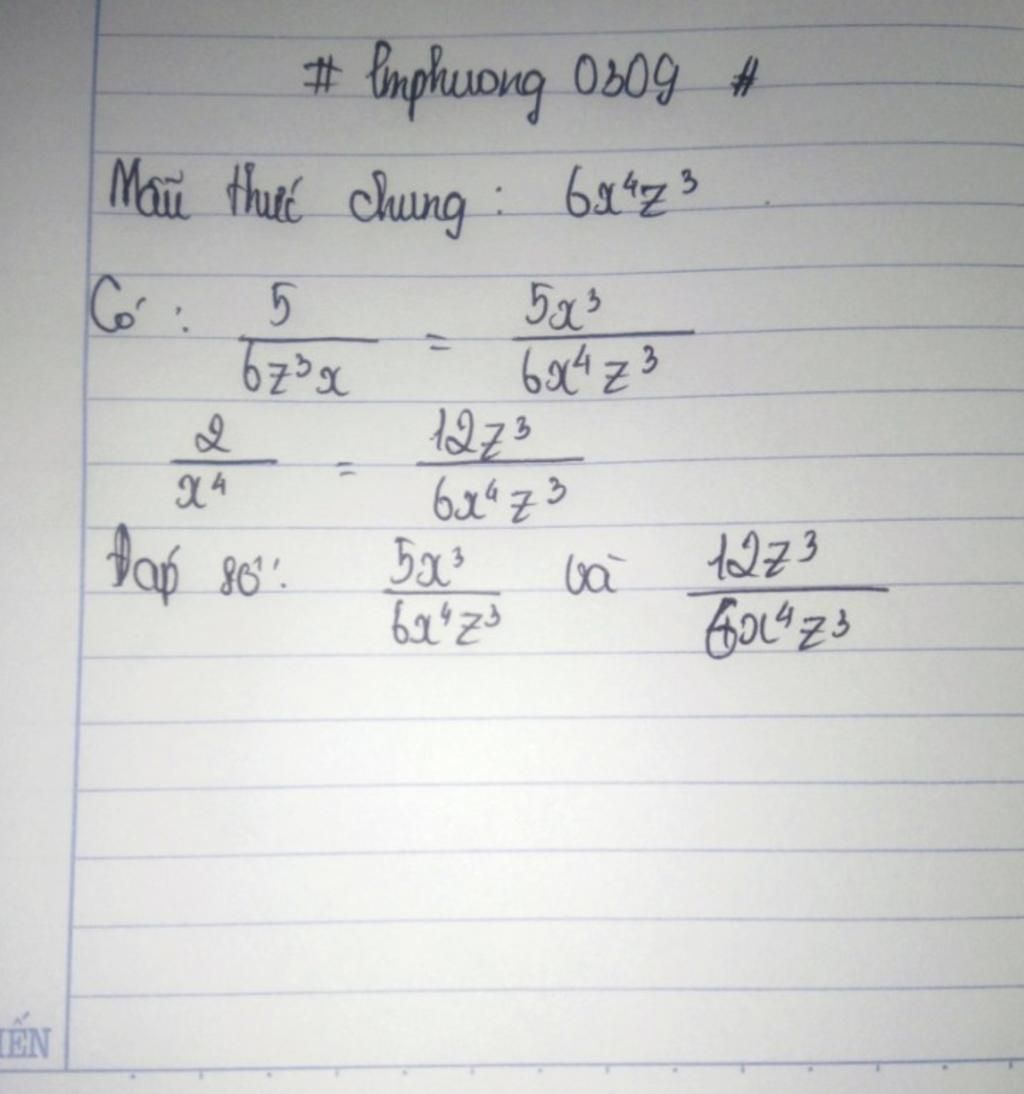 # lmphuong 0309 #
Mẫu thức chung : 6x⁴z³
Có : 5/(6z³x) = 5x³/(6x⁴z³)
2/x⁴ = 12z³/(6x⁴z³)
Đáp số : 5x³/(6x⁴z³) và 12z³/(6x⁴z³)
IẾN